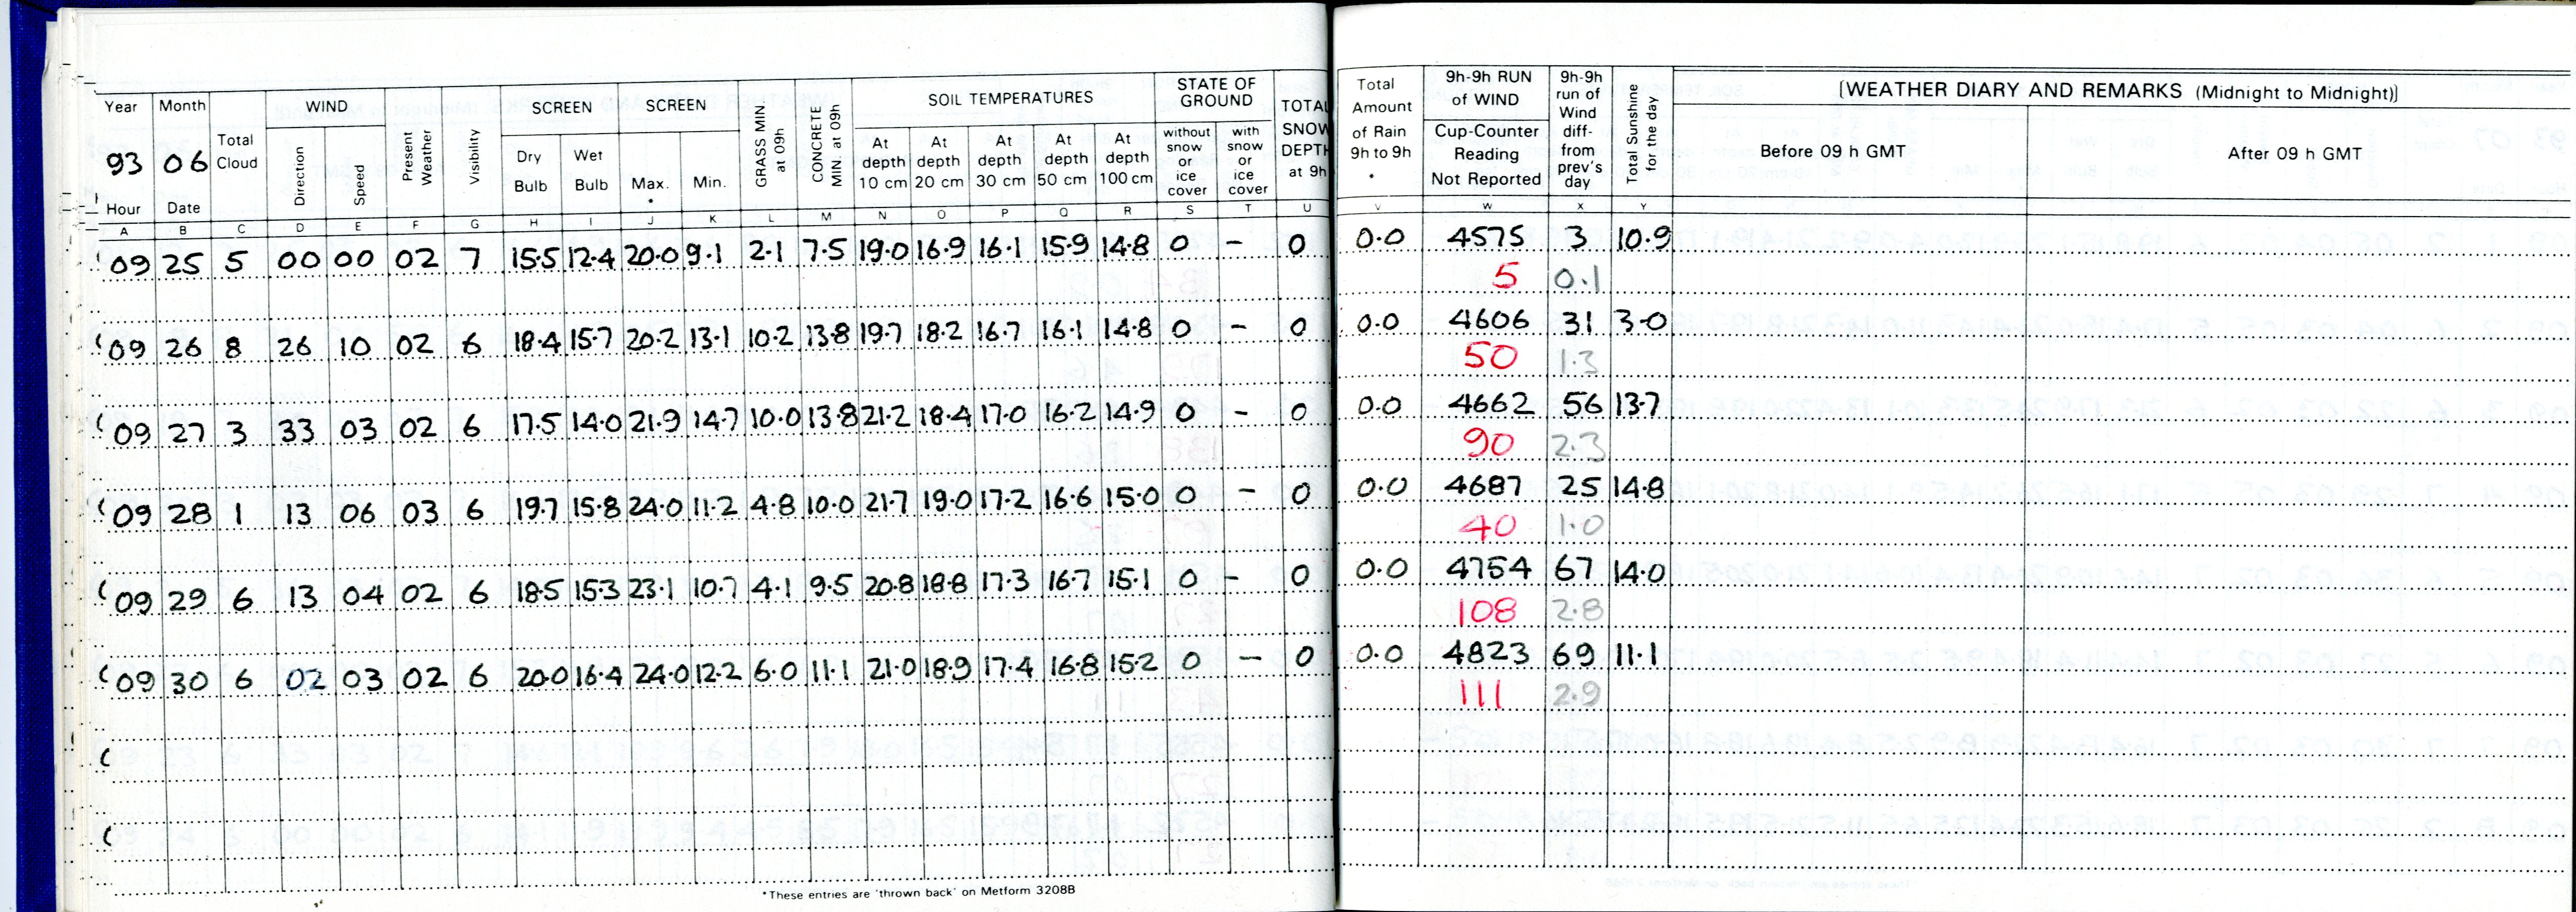 Year Month Total Cloud WIND Direction Speed Present Weather Visibility SCREEN Dry Bulb Wet Bulb SCREEN Max. * Min. GRASS MIN. at 09h CONCRETE MIN. at 09h SOIL TEMPERATURES At depth 10 cm At depth 20 cm At depth 30 cm At depth 50 cm At depth 100 cm STATE OF GROUND without snow or ice cover with snow or ice cover TOTAL SNOW DEPTH at 9h Total Amount of Rain 9h to 9h * 9h-9h RUN of WIND Cup-Counter Reading Not Reported 9h-9h run of Wind diff- from prev's day Total Sunshine for the day [WEATHER DIARY AND REMARKS (Midnight to Midnight)]
93 06 Before 09 h GMT After 09 h GMT
Hour Date
A B C D E F G H I J K L M N O P Q R S T U V W X Y
09 25 5 00 00 02 7 15.5 12.4 20.0 9.1 2.1 7.5 19.0 16.9 16.1 15.9 14.8 0 - 0 0.0 4575 3 10.9
5 0.1
09 26 8 26 10 02 6 18.4 15.7 20.2 13.1 10.2 13.8 19.7 18.2 16.7 16.1 14.8 0 - 0 0.0 4606 31 3.0
50 1.3
09 27 3 33 03 02 6 17.5 14.0 21.9 14.7 10.0 13.8 21.2 18.4 17.0 16.2 14.9 0 - 0 0.0 4662 56 13.7
90 2.3
09 28 1 13 06 03 6 19.7 15.8 24.0 11.2 4.8 10.0 21.7 19.0 17.2 16.6 15.0 0 - 0 0.0 4687 25 14.8
40 1.0
09 29 6 13 04 02 6 18.5 15.3 23.1 10.7 4.1 9.5 20.8 18.8 17.3 16.7 15.1 0 - 0 0.0 4754 67 14.0
108 2.8
09 30 6 02 03 02 6 20.0 16.4 24.0 12.2 6.0 11.1 21.0 18.9 17.4 16.8 15.2 0 - 0 0.0 4823 69 11.1
111 2.9
*These entries are 'thrown back' on Metform 3208B